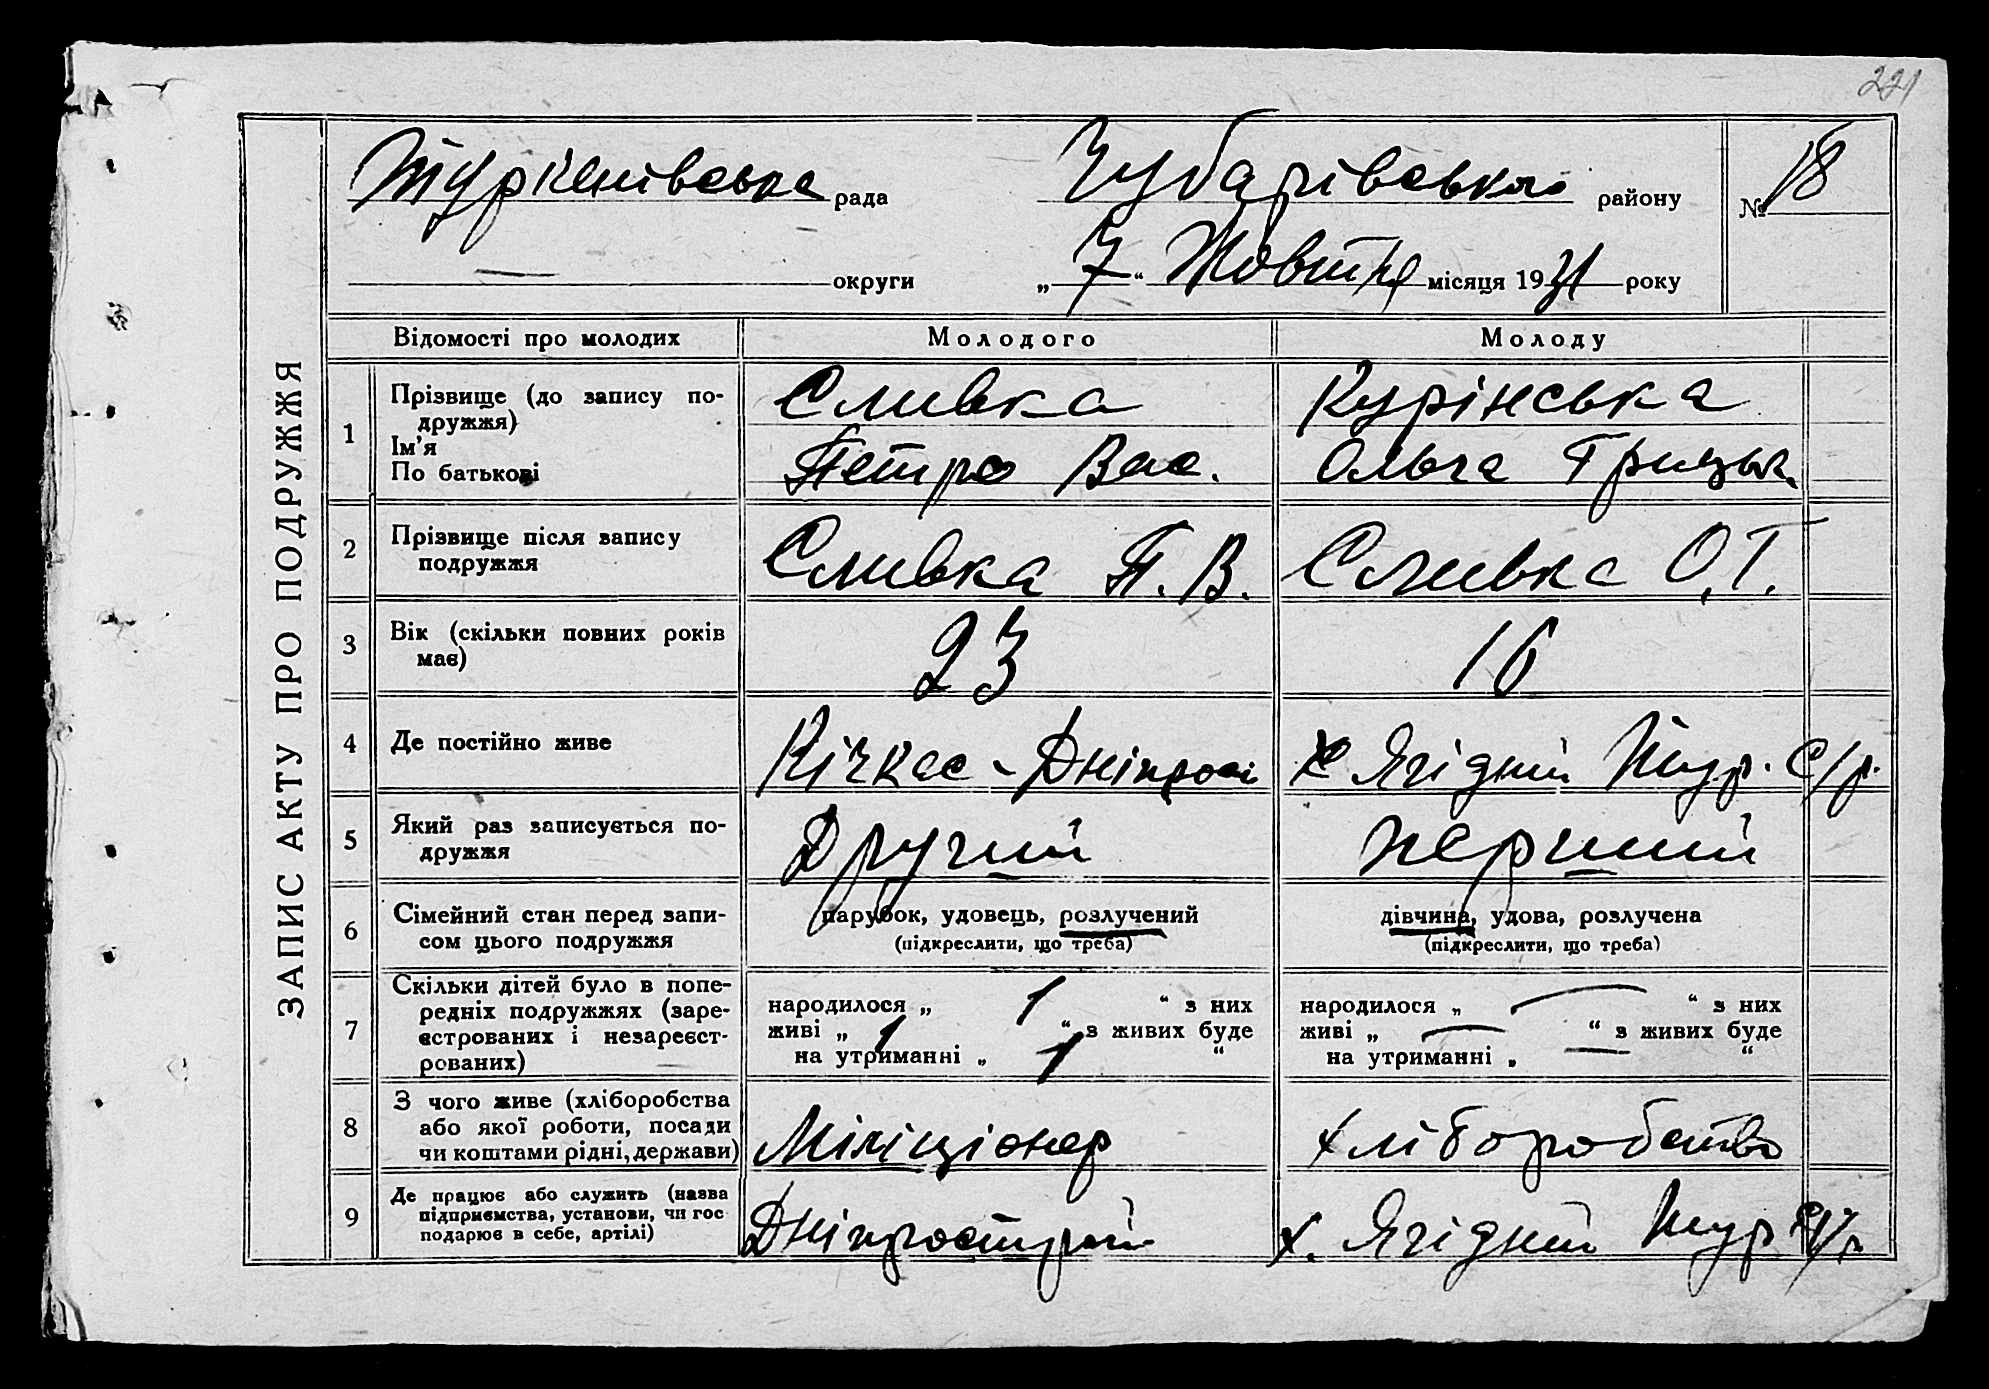 221
ЗАПИС АКТУ ПРО ПОДРУЖЖЯ
Туркенівська рада Чубарівського району № 18
— округи „7“ Жовтня місяця 1931 року
Відомості про молодих Молодого Молоду
1 Прізвище (до запису по-
дружжя)
Ім’я
По батькові
Сливка
Петро Вас.
Курінська
Ольга Грицьк.
2 Прізвище після запису
подружжя
Сливка П. В.
Сливка О.Г.
3 Вік (скільки повних років
має)
23
16
4 Де постійно живе
Кічкас - Дніпрост
х Ягідний Тур. С/р.
5 Який раз записується по-
дружжя
Другий
перший
6 Сімейний стан перед запи-
сом цього подружжя
парубок, удовець, розлучений
(підкреслити, що треба)
дівчина, удова, розлучена
(підкреслити, що треба)
7 Скільки дітей було в попе-
редніх подружжях (заре-
єстрованих і незареєст-
рованих)
народилося „ 1 “ з них
живі „ 1 “ з живих буде
на утриманні „ 1 “
народилося „ — “ з них
живі „ — “ з живих буде
на утриманні „ — “
8 З чого живе (хліборобства
або якої роботи, посади
чи коштами рідні, держави)
Міліціонер
хліборобство
9 Де працює або служить (назва
підприємства, установи, чи гос
подарює в себе, артілі)
Дніпрострой
х. Ягідний Тур с/р